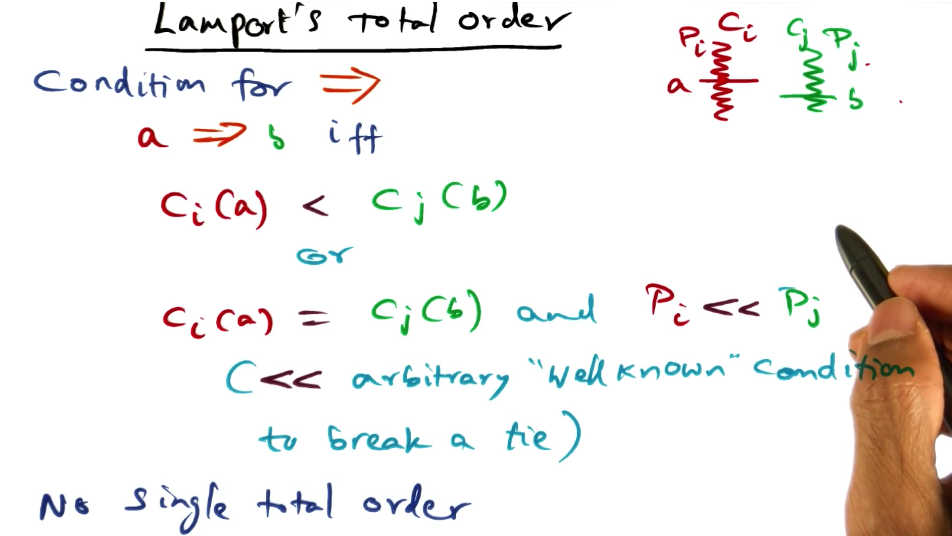 Lamport's Total order
Condition for ⇒
a ⇒ b iff
Ci(a) < Cj(b)
or
Ci(a) = Cj(b) and Pi << Pj
(<< arbitrary "Well known" Condition
to break a tie)
No single total order
Pi Ci Cj Pj
a b